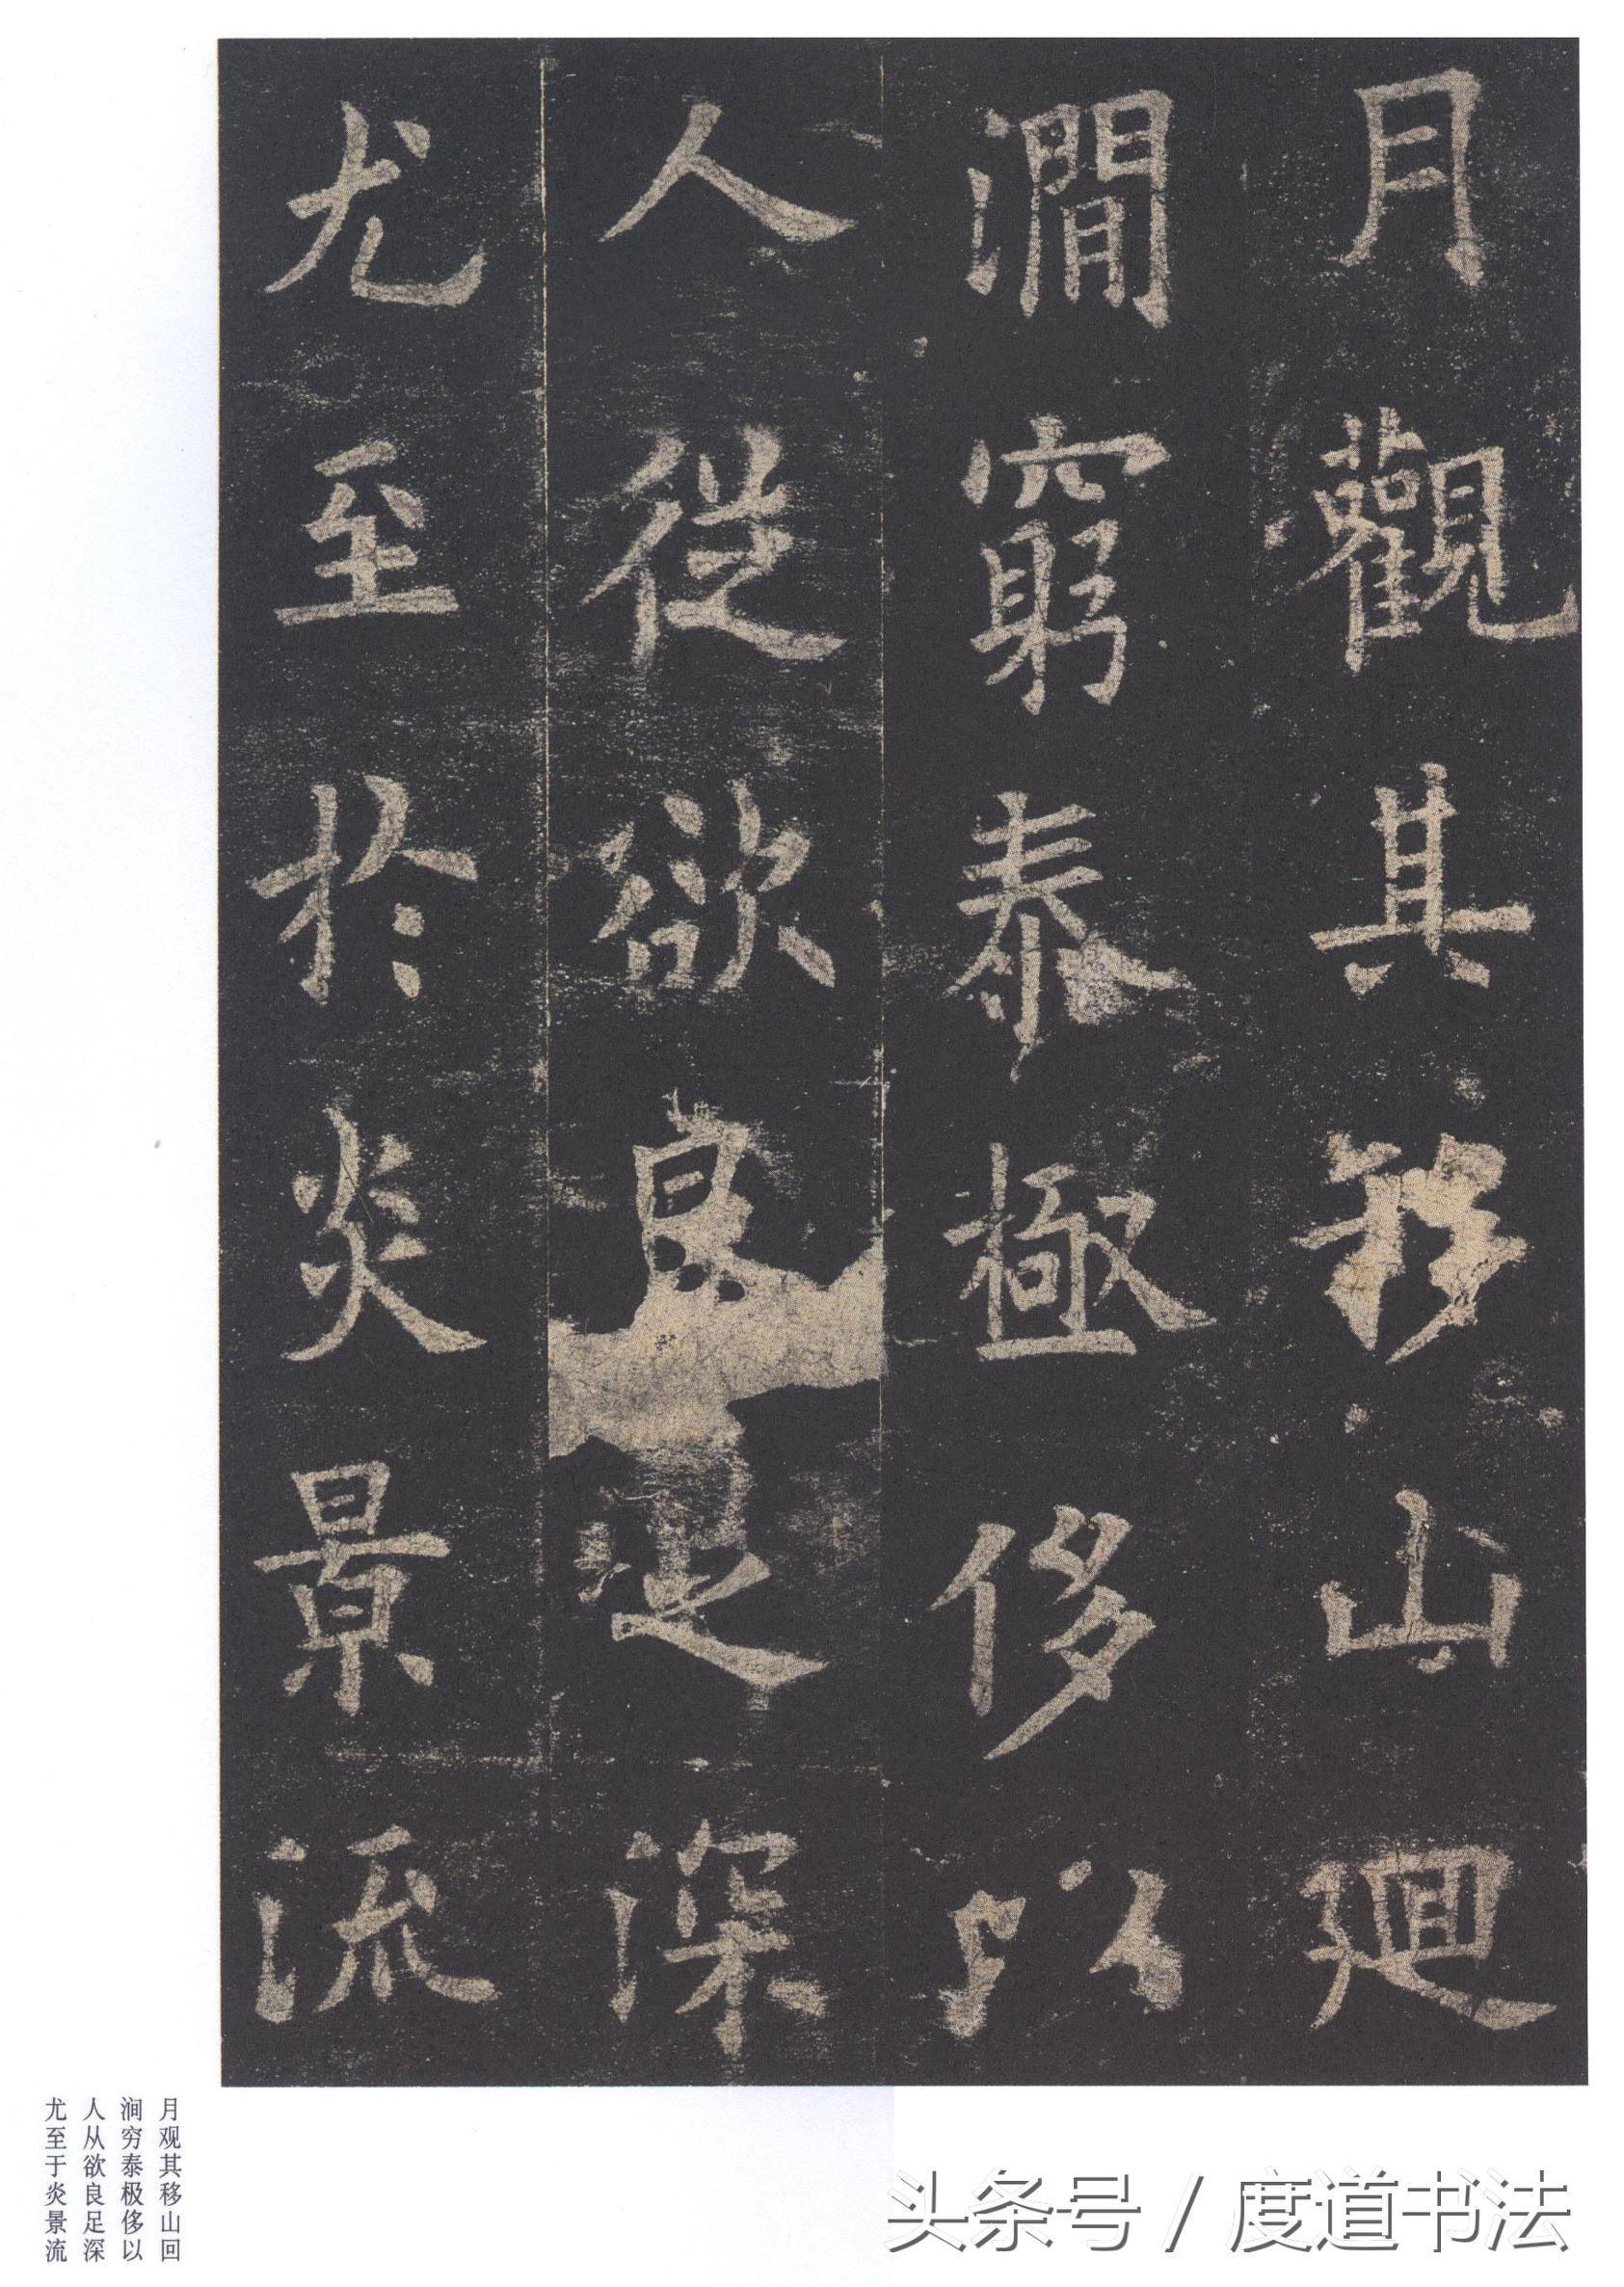 月觀其移山迴
澗窮泰極侈以
人從欲良足深
尤至於炎景流
月观其移山回
涧穷泰极侈以
人从欲良足深
尤至于炎景流
头条号 / 度道书法